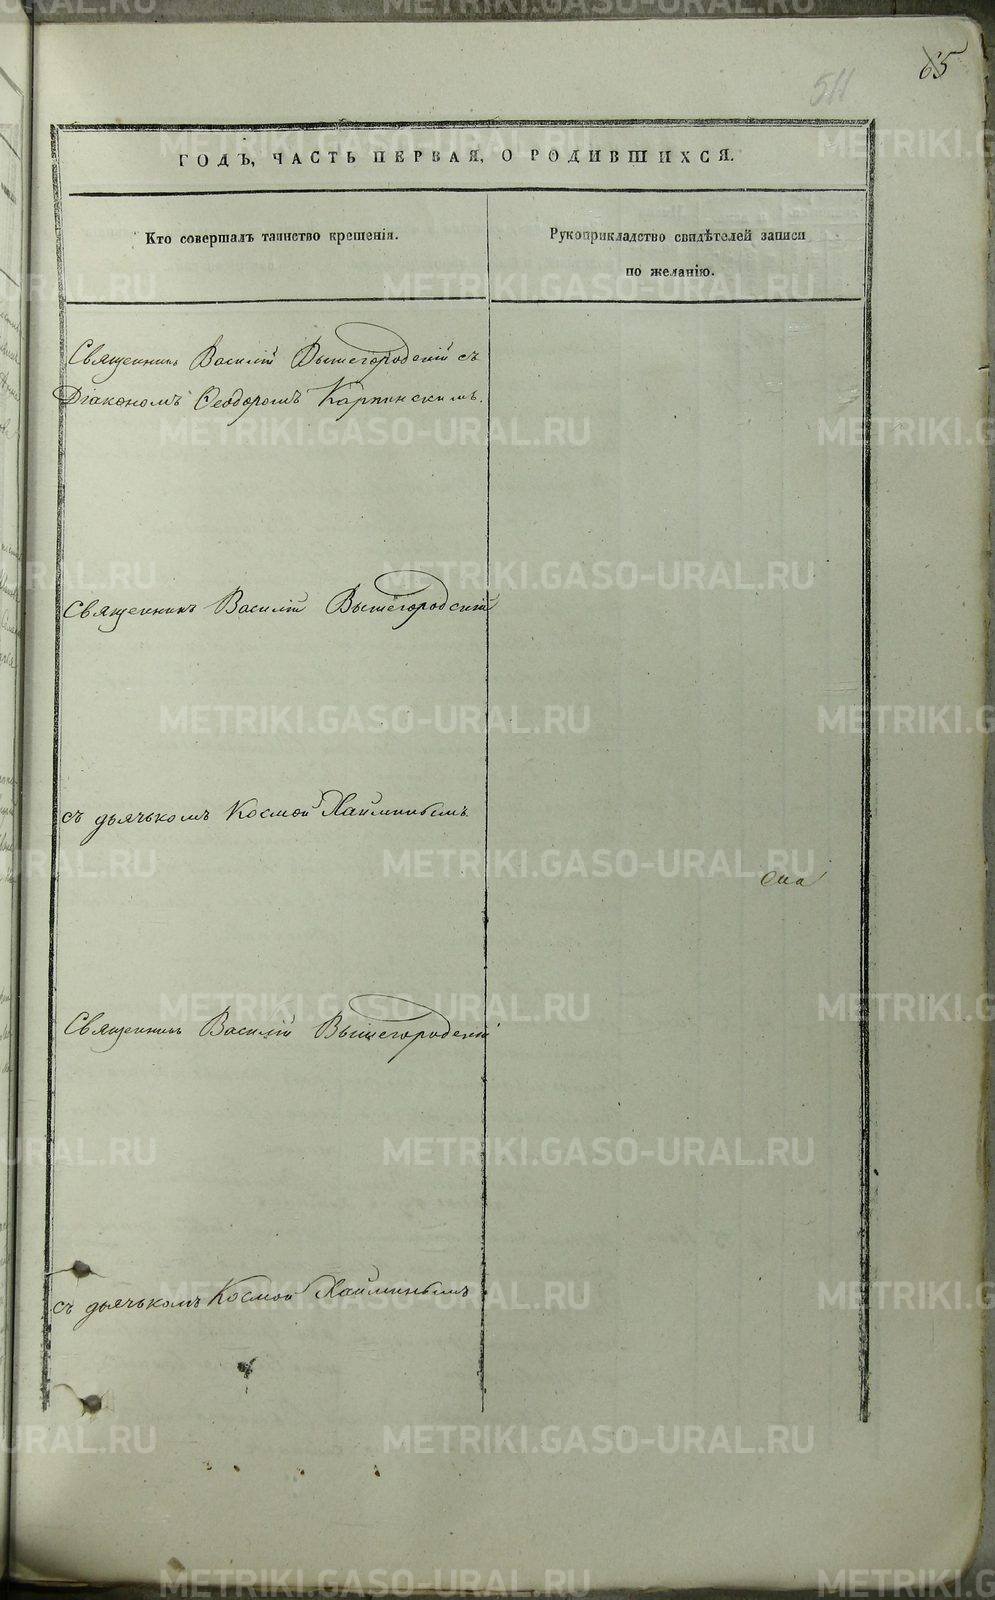 65
511
ГОДЪ, ЧАСТЬ ПЕРВАЯ, О РОДИВШИХСЯ.
Кто совершалъ таинство крещенія.
Рукоприкладство свидѣтелей записи
по желанію.
Священникъ Василій Вышегородскій съ
Діакономъ Ѳеодоромъ Карпинскимъ.
Священникъ Василій Вышегородскій
съ дьячькомъ Космой
Священникъ Василій Вышегородскій
съ дьячькомъ Космой
METRIKI.GASO-URAL.RU